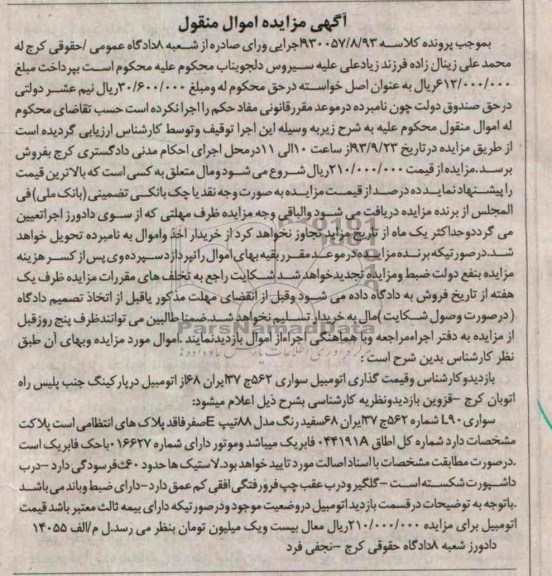 آگهی مزایده اموال منقول
بموجب پرونده کلاسه ۹۳۰۰۵۷/۸/۹۳اجرایی ورای صادره از شعبه ۸دادگاه عمومی /حقوقی کرج له
محمد علی زینال زاده فرزند زیادعلی علیه سیروس دلجویناب محکوم علیه محکوم است بپرداخت مبلغ
۶۱۲/۰۰۰/۰۰۰ریال به عنوان اصل خواسته در حق محکوم له ومبلغ ۳۰/۶۰۰/۰۰۰ریال نیم عشر دولتی
در حق صندوق دولت چون نامبرده در موعد مقرر قانونی مفاد حکم را اجرا نکرده است حسب تقاضای محکوم
له اموال منقول محکوم علیه به شرح زیر به وسیله این اجرا توقیف وتوسط کارشناس ارزیابی گردیده است
از طریق مزایده در تاریخ ۹۳/۹/۲۳از ساعت ۱۰الی ۱۱در محل اجرای احکام مدنی دادگستری کرج بفروش
برسد.مزایده از قیمت ۲۱۰/۰۰۰/۰۰۰ریال شروع می شود ومال متعلق به کسی است که بالاترین قیمت
را پیشنهاد نماید ده درصد از قیمت مزایده به صورت وجه نقد یا چک بانکی تضمینی (بانک ملی) فی
المجلس از برنده مزایده دریافت می شود والباقی وجه مزایده ظرف مهلتی که از سوی دادورز اجراتعیین
می گردد وحداکثر یک ماه از تاریخ مزاید تجاوز نخواهد کرد از خریدار اخذ واموال به نامبرده تحویل خواهد
شد.در صورتیکه برنده مزایده در موعد مقرر بقیه بهای اموال را نپردازد سپرده وی پس از کسر هزینه
مزایده بنفع دولت ضبط ومزایده تجدید خواهد شد شکایت راجع به تخلف های مقررات مزایده ظرف یک
هفته از تاریخ فروش به دادگاه داده می شود وقبل از انقضای مهلت مذکور یاقبل از اتخاذ تصمیم دادگاه
(در صورت وصول شکایت) مال به خریدار تسلیم نخواهد شد.ضمنا طالبین می توانند ظرف پنج روز قبل
از مزایده به دفتر اجراء مراجعه وبا هماهنگی اجراء از اموال بازدید نمایند .اموال مورد مزایده وبهای آن طبق
نظر کارشناس بدین شرح است :
بازدید وکارشناس وقیمت گذاری اتومبیل سواری ۵۶۲ج۳۷ ایران ۶۸از اتومبیل در پارکینگ جنب پلیس راه
اتوبان کرج –قزوین بازدید ونظریه کارشناسی بشرح ذیل اعلام میشود:
سواری L۹۰ شماره ۵۶۲ج۳۷ ایران ۶۸سفید رنگ مدل ۸۸تیپ Eصفر فاقد پلاک های انتظامی است پلاکت
مشخصات دارد شماره کل اطاق ۰۴۴۱۹۱۸ فابریک میباشد وموتور دارای شماره ۰۱۶۶۲۷ باحک فابریک است
.در صورت مطابقت مشخصات با اسناد اصالت مورد تایید خواهد بود.لاستیک ها حدود ۶۰٪ فرسودگی دارد –درب
داشپورت شکسته است –گلگیر ودرب عقب چپ فرورفتگی افقی کم عمق دارد –دارای ضبط وباند می باشد
.باتوجه به توضیحات در قسمت بازدید اتومبیل در وضعیت موجود ودر صورتیکه دارای بیمه ثالث معتبر باشد قیمت
اتومبیل برای مزایده ۲۱۰/۰۰۰/۰۰۰ریال معال بیست ویک میلیون تومان بنظر می رسد.ل م/الف ۱۴۰۵۵
دادورز شعبه ۸دادگاه حقوقی کرج –نجفی فرد
ParsNamadData